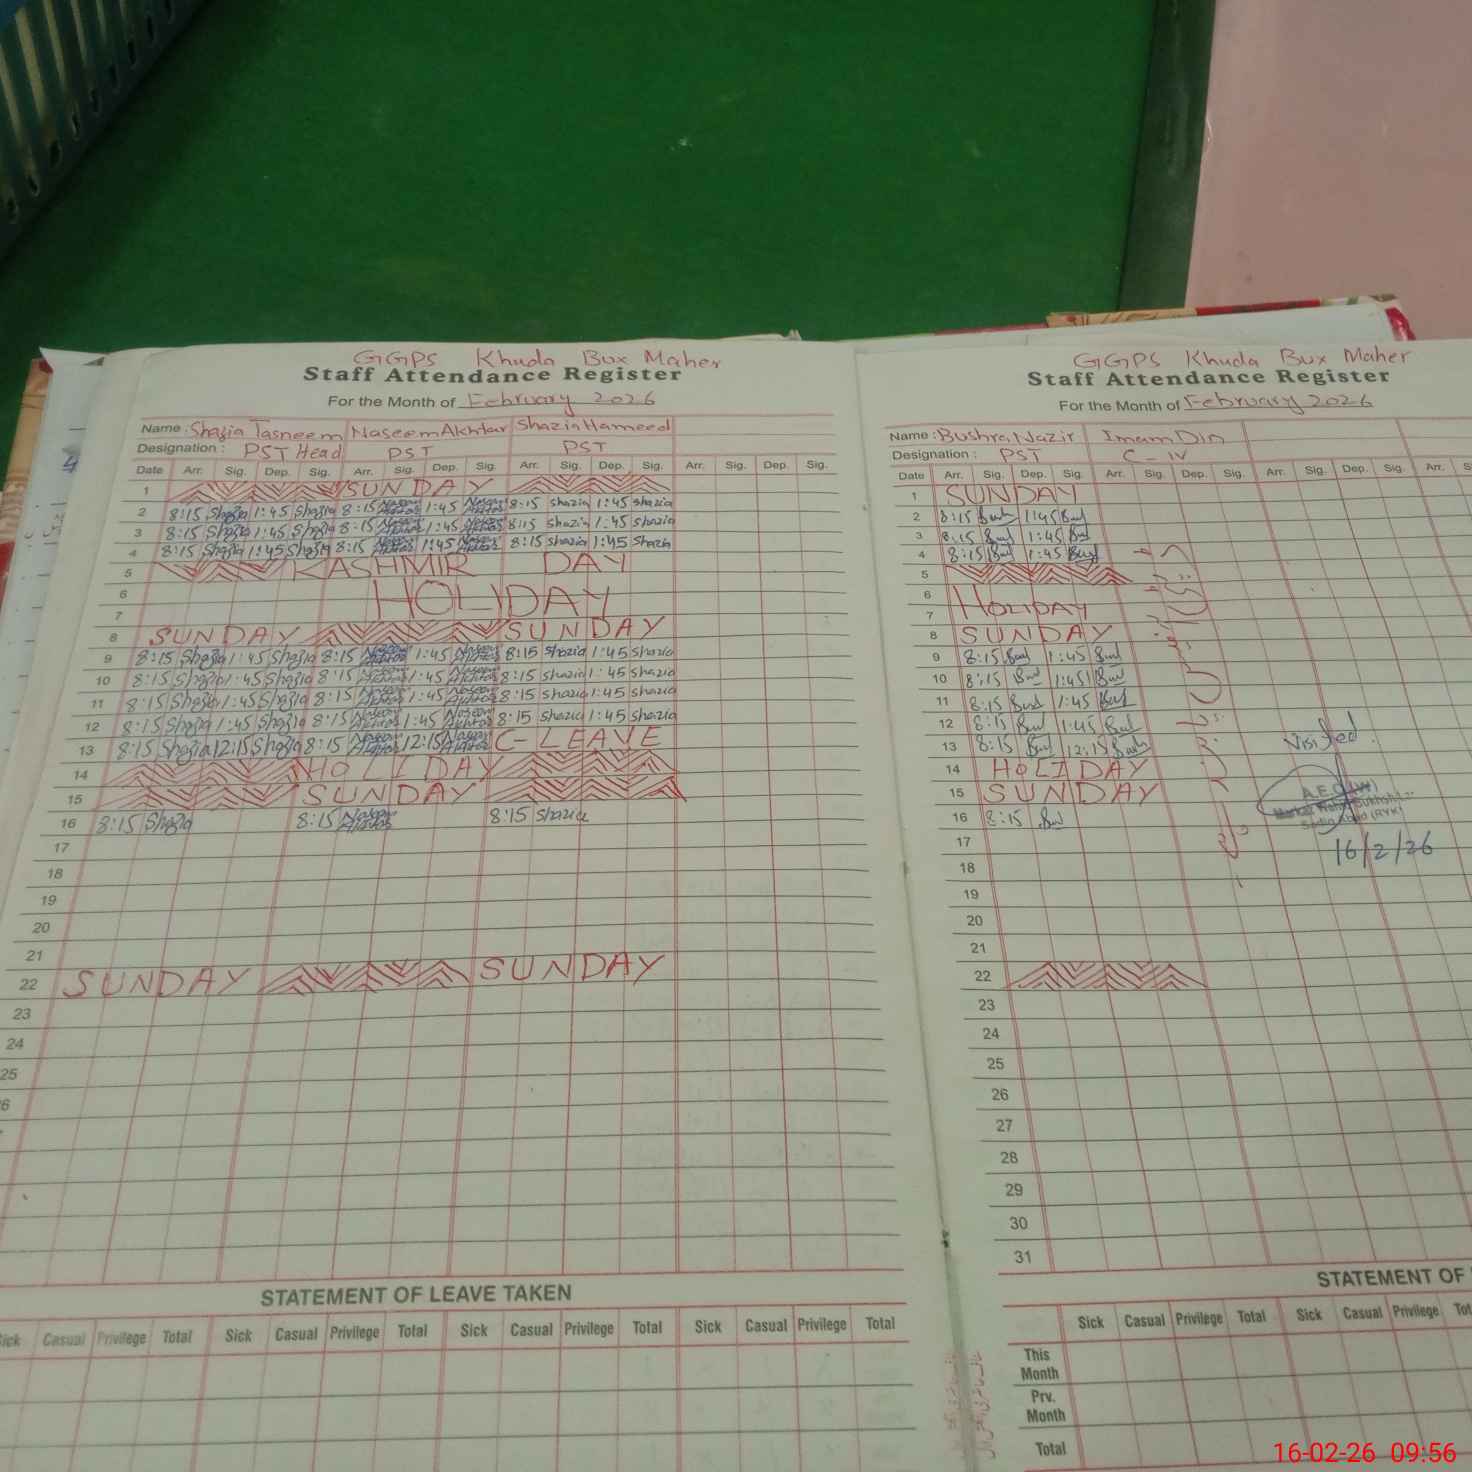 GGPS Khuda Bux Maher
Staff Attendance Register
For the Month of February 2026
Name : Shazia Tasneem Naseem Akhtar Shazia Hameed
Designation : PST Head PST PST
Date Arr. Sig. Dep. Sig. Arr. Sig. Dep. Sig. Arr. Sig. Dep. Sig. Arr. Sig. Dep. Sig.
1 SUNDAY
2 8:15 Shazia 1:45 Shazia 8:15 Naseem Akhtar 1:45 Naseem Akhtar 8:15 shazia 1:45 shazia
3 8:15 Shazia 1:45 Shazia 8:15 Naseem Akhtar 1:45 Naseem Akhtar 8:15 shazia 1:45 shazia
4 8:15 Shazia 1:45 Shazia 8:15 Naseem Akhtar 1:45 Naseem Akhtar 8:15 shazia 1:45 shazia
5 KASHMIR DAY
6 HOLIDAY
7
8 SUNDAY SUNDAY
9 8:15 Shazia 1:45 Shazia 8:15 Naseem Akhtar 1:45 Naseem Akhtar 8:15 shazia 1:45 shazia
10 8:15 Shazia 1:45 Shazia 8:15 Naseem Akhtar 1:45 Naseem Akhtar 8:15 shazia 1:45 shazia
11 8:15 Shazia 1:45 Shazia 8:15 Naseem Akhtar 1:45 Naseem Akhtar 8:15 shazia 1:45 shazia
12 8:15 Shazia 1:45 Shazia 8:15 Naseem Akhtar 1:45 Naseem Akhtar 8:15 shazia 1:45 shazia
13 8:15 Shazia 12:15 Shazia 8:15 Naseem Akhtar 12:15 Naseem Akhtar C-LEAVE
14 HOLIDAY
15 SUNDAY
16 8:15 Shazia 8:15 Naseem Akhtar 8:15 shazia
17
18
19
20
21
22 SUNDAY SUNDAY
23
24
25
6
STATEMENT OF LEAVE TAKEN
Sick Casual Privilege Total Sick Casual Privilege Total Sick Casual Privilege Total Sick Casual Privilege Total
GGPS Khuda Bux Maher
Staff Attendance Register
For the Month of February 2026
Name : Bushra Nazir Imam Din
Designation : PST C-IV
Date Arr. Sig. Dep. Sig. Arr. Sig. Dep. Sig. Arr. Sig. Dep. Sig. Arr. S
1 SUNDAY
2 8:15 1:45
3 8:15 1:45
4 8:15 1:45
5
6
7 HOLIDAY
8 SUNDAY
9 8:15 1:45
10 8:15 1:45
11 8:15 1:45
12 8:15 1:45
13 8:15 12:15
14 HOLIDAY
15 SUNDAY
16 8:15
Visited.
A.E.O (W)
Sadiq Abad (RYK)
16/2/26
17
18
19
20
21
22
23
24
25
26
27
28
29
30
31
STATEMENT OF
Sick Casual Privilege Total Sick Casual Privilege Tot
This Month
Prv. Month
Total
16-02-26 09:56